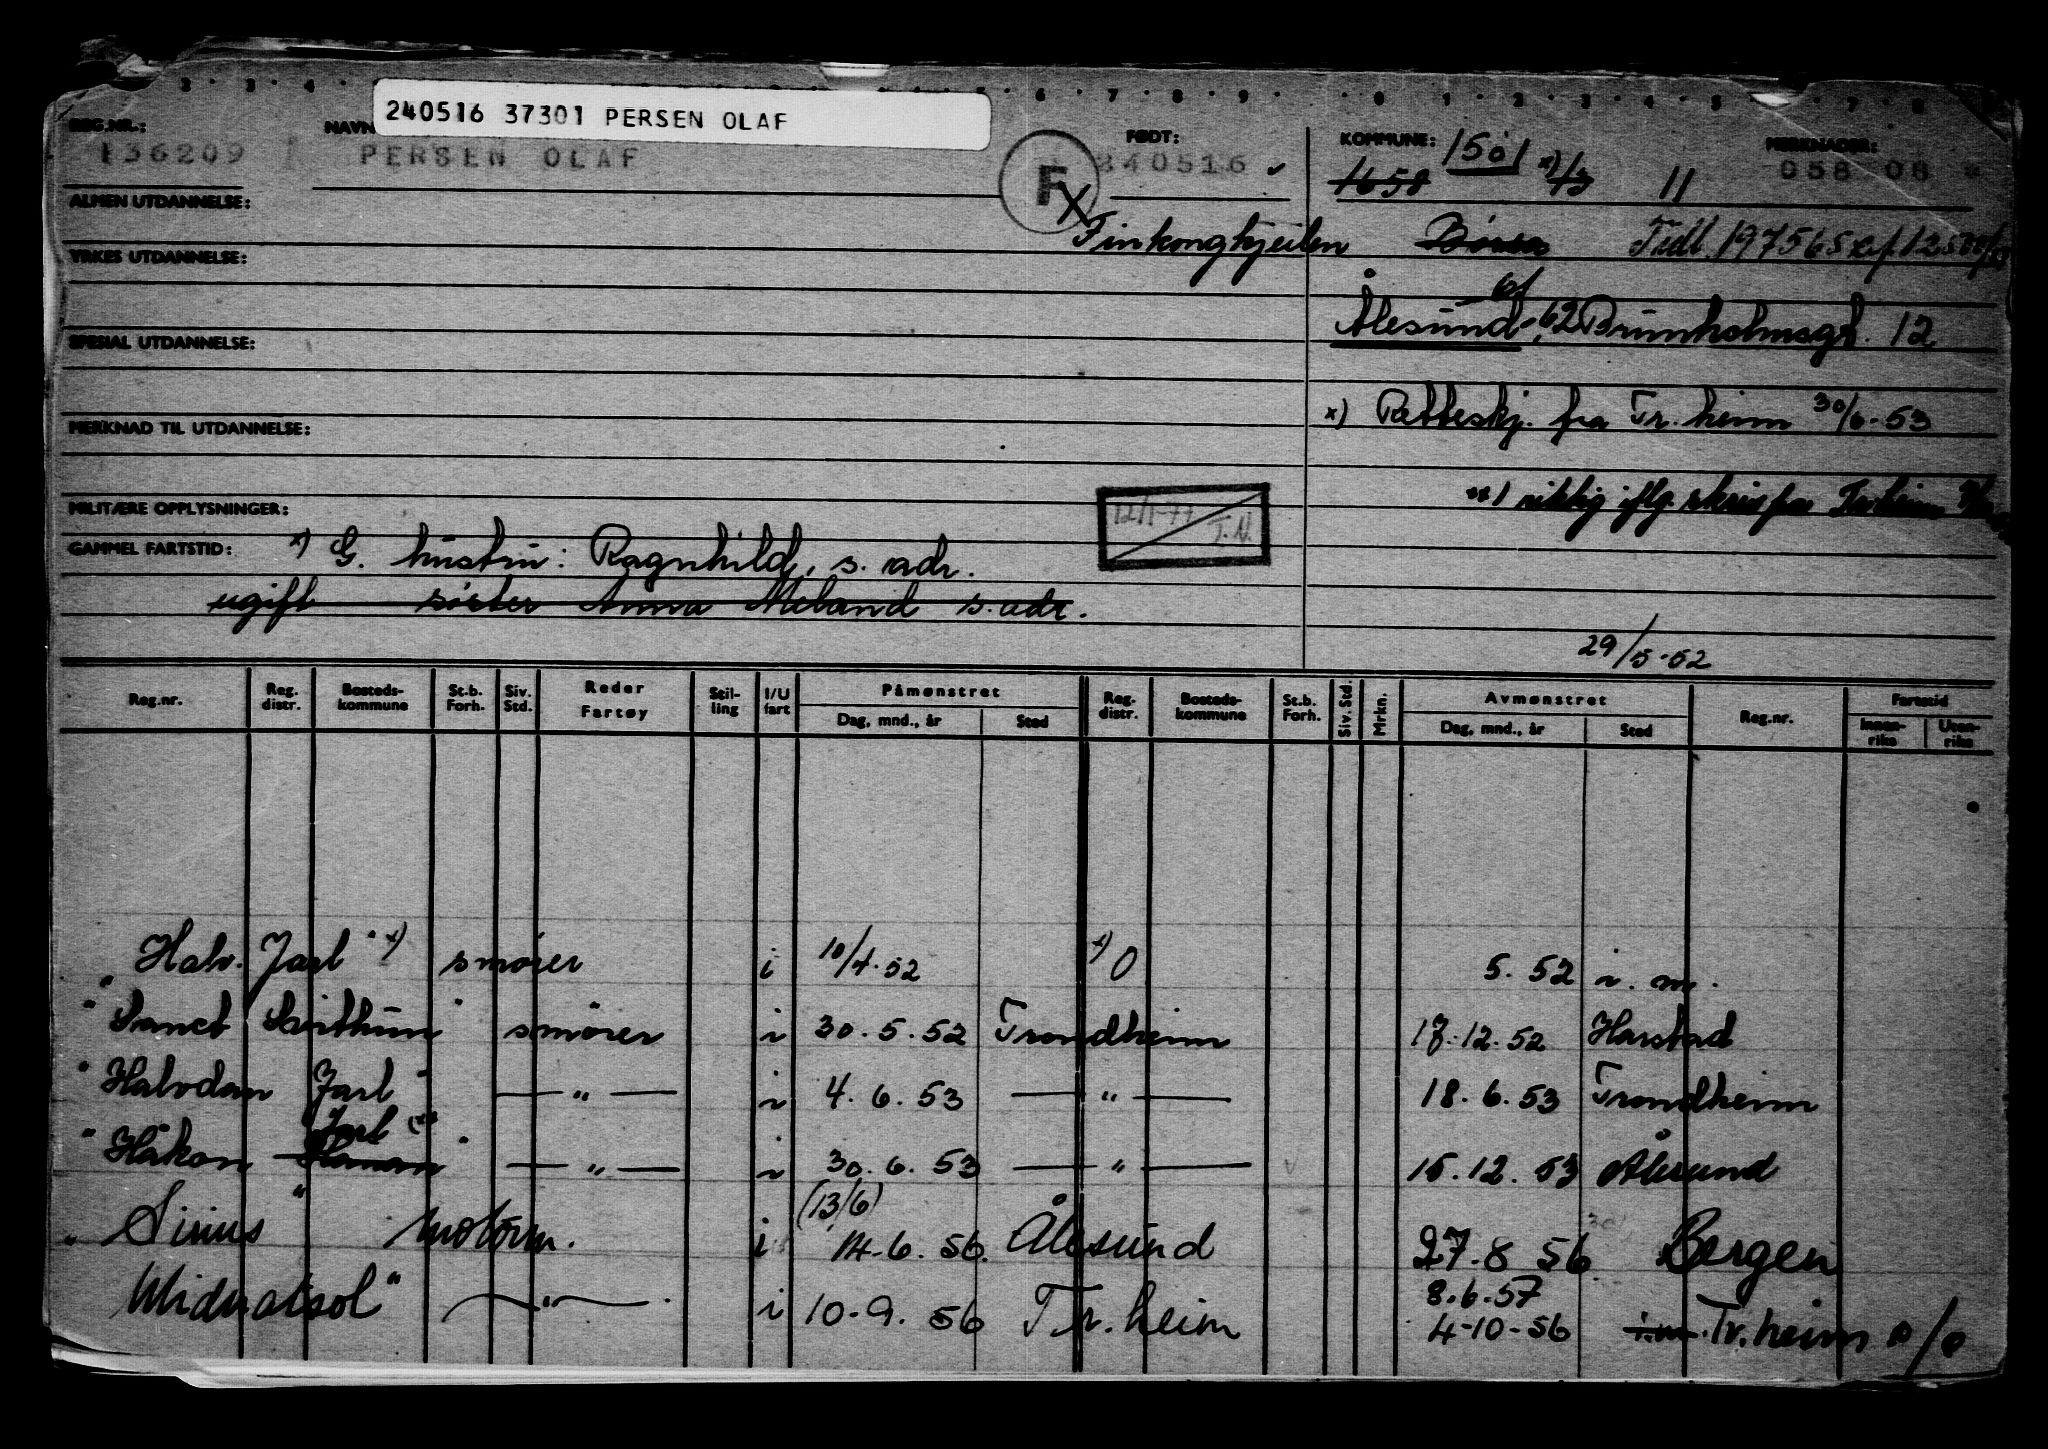 240516 37301 PERSEN OLAF
REG.NR.: NAVN FØDT: KOMMUNE: 1501 MERKNADER:
136209 PERSEN OLAF F 240516 1658 x) 13 11 058 08
ALMEN UTDANNELSE:
x Finkongkjeilen Børsa Tidl. 197565
YRKES UTDANNELSE:
Ålesund, 62 Brunholmsgt. 12
SPESIAL UTDANNELSE:
x) Retteskj. fra Tr.heim 30/6-53
MERKNAD TIL UTDANNELSE:
xx) riktig iflg. skriv fra Tr.heim
MILITÆRE OPPLYSNINGER:
12/1-77 T.N.
GAMMEL FARTSTID: x) G. hustru: Ragnhild, s. adr.
ugift søster Anna Meland s. adr.
29/5-52
Reg.nr. Reg. distr. Bosteds-kommune St.b. Forh. Siv. Std. Reder Fartøy Stil-ling I/U fart Påmønstret Reg. distr. Bosteds-kommune St.b. Forh. Siv. Std. Mrkn. Avmønstret Reg.nr. Fartstid
Dag, mnd., år Sted Dag, mnd., år Sted Innen-riks Uten-riks
"Halv. Jarl" x) smører i 10/4-52 x) 0 5. 52 i. m.
"Sanct Svithun" smører i 30. 5. 52 Trondheim 17.12.52 Harstad
"Halvdan Jarl" — " — i 4. 6. 53 — " — 18. 6. 53 Trondheim
Jarl" (xx
"Håkon — " — i 30. 6. 53 — " — 15. 12. 53 Ålesund
(13/6)
"Sirius" motorm. i 14. 6. 56. Ålesund 27. 8 56 Bergen
8.6.57
Midnatsol" — " — i 10-9. 56 Tr.heim 4-10-56 i.m. Tr.heim o/o